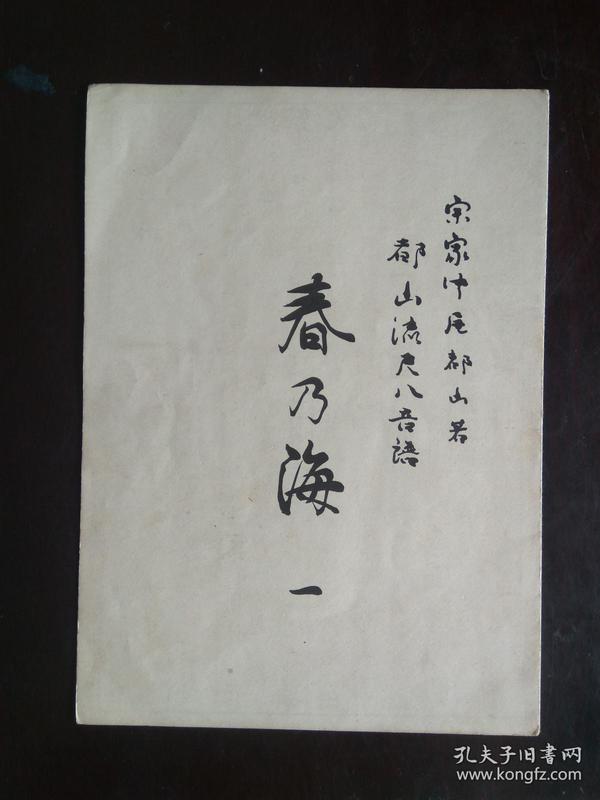 宗家中尾都山著
都山流尺八音譜
春乃海
一
孔夫子旧書网
www.kongfz.com